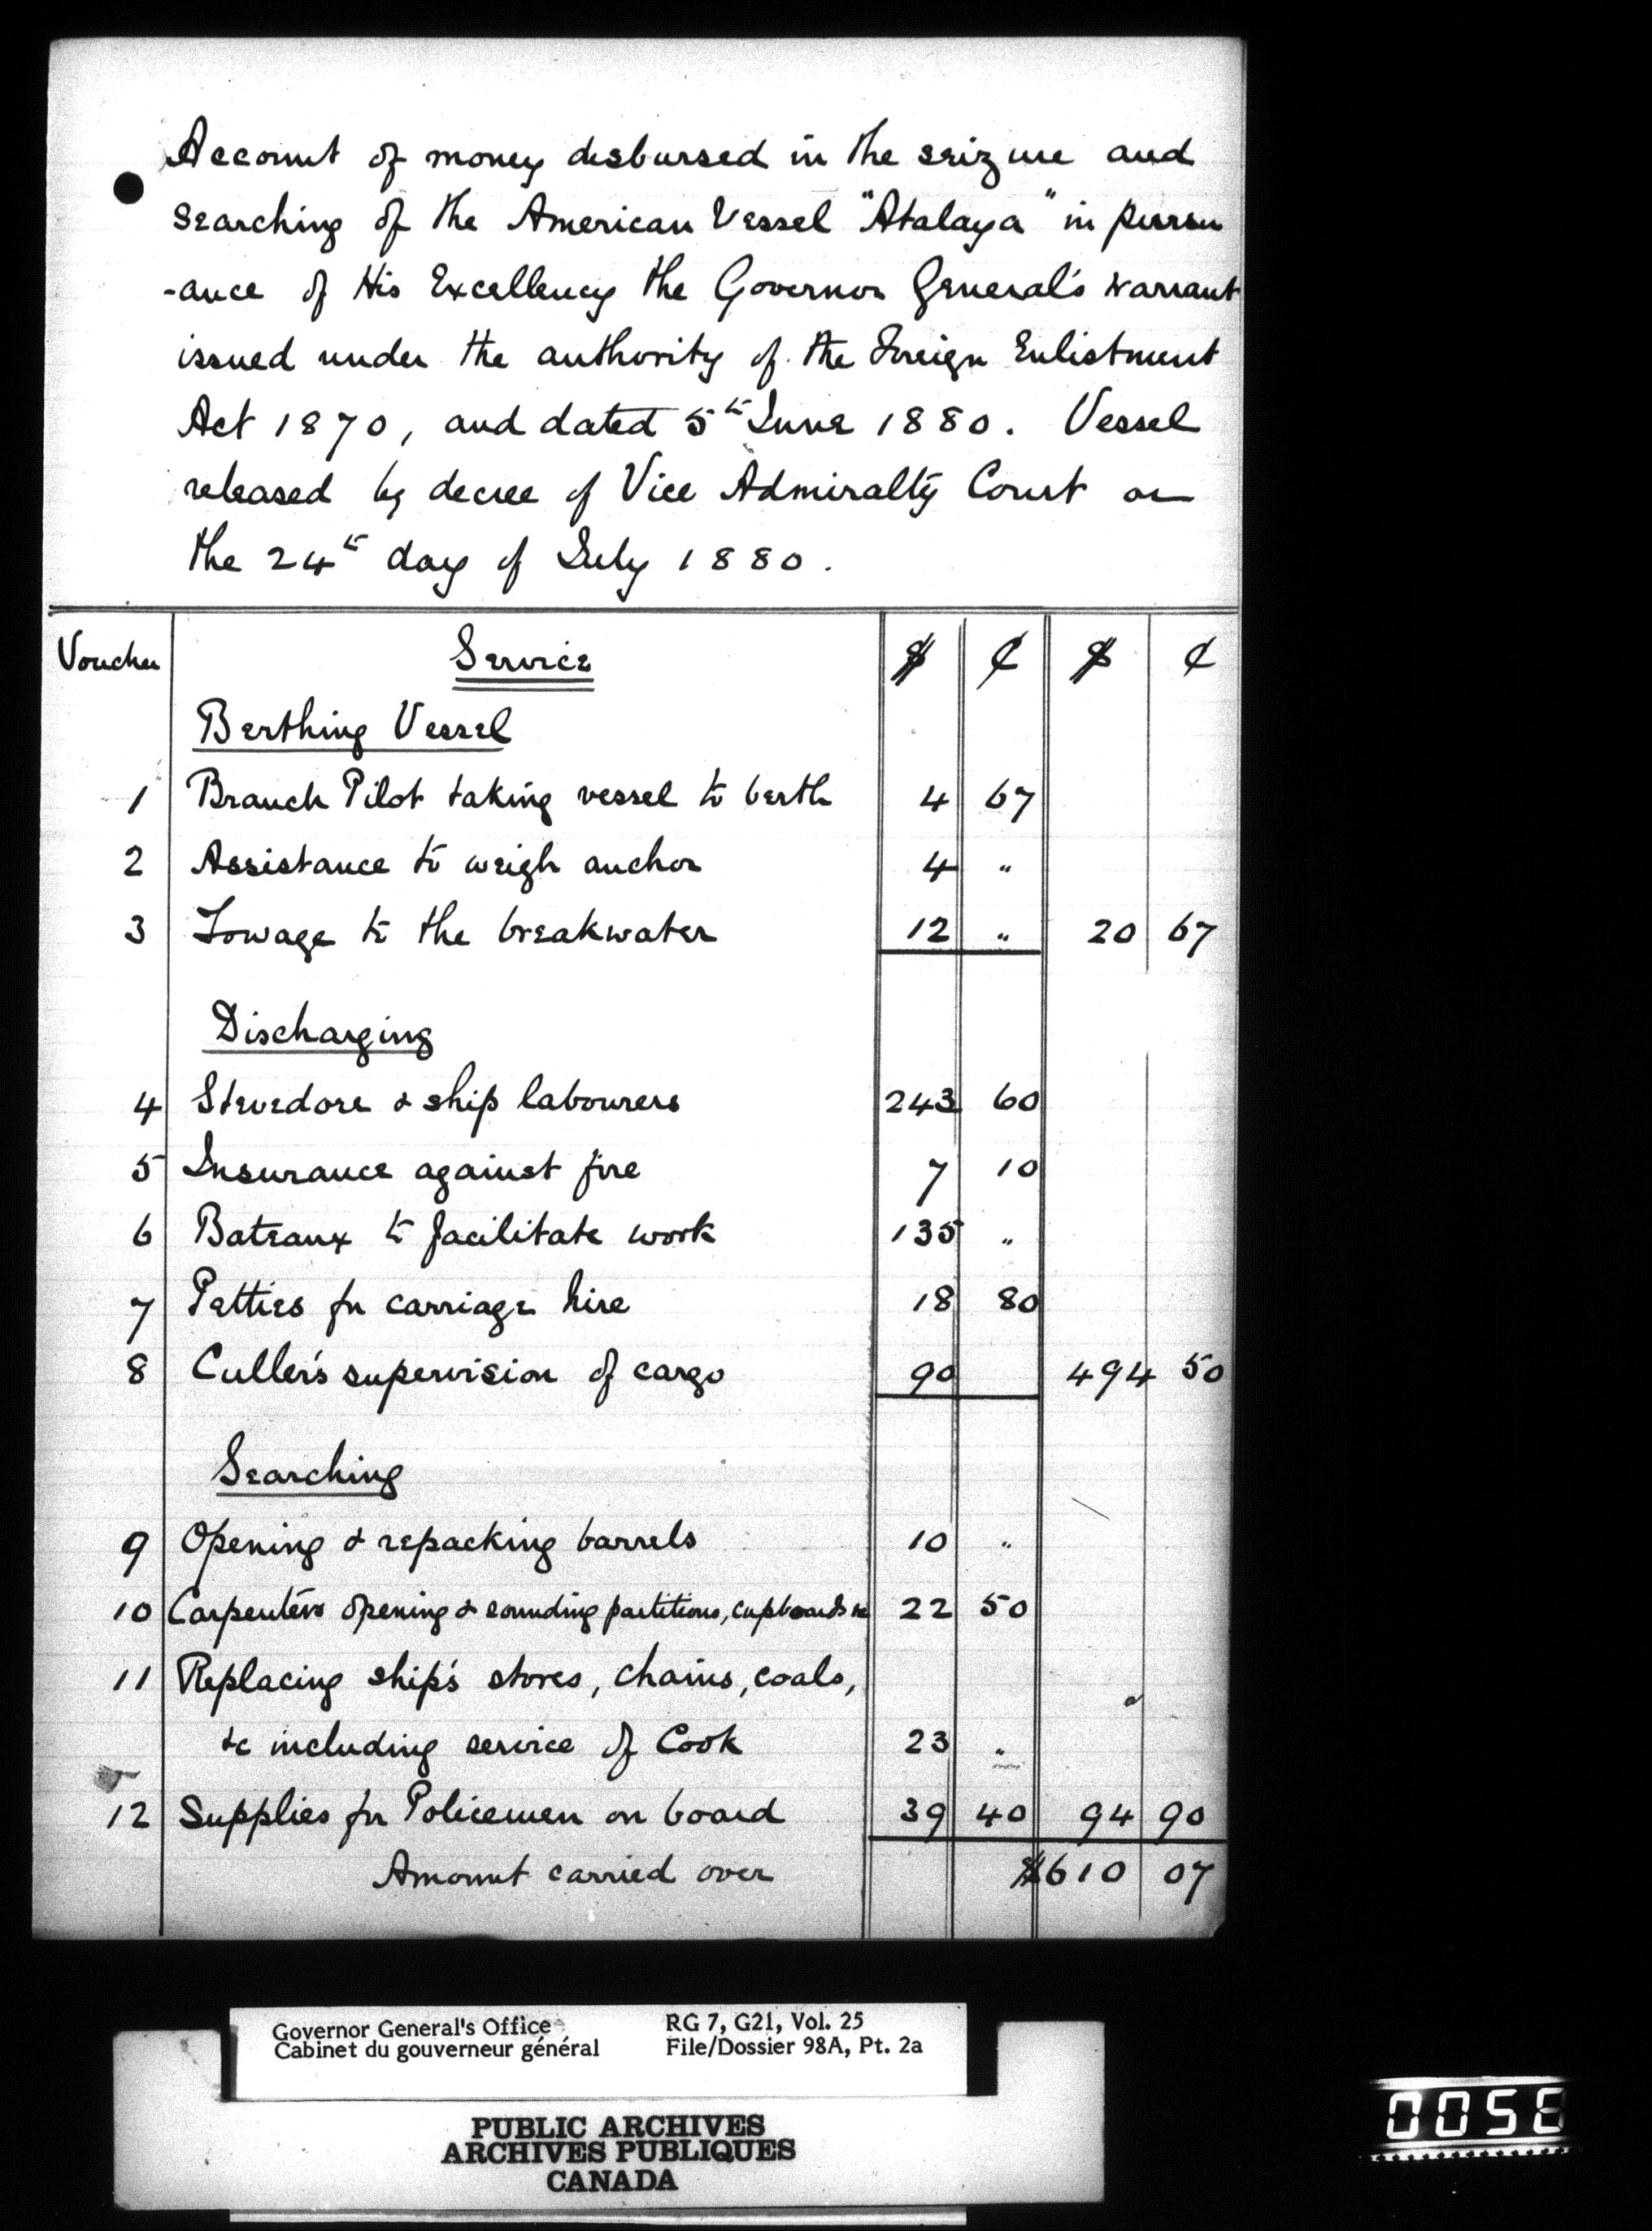 Account of money disbursed in the seizure and
searching of the American Vessel "Atalaya" in pursu
-ance of His Excellency the Governor General's warrant
issued under the authority of the Foreign Enlistment
Act 1870, and dated 5th June 1880. Vessel
released by decree of Vice Admiralty Court on
the 24th day of July 1880.
Voucher Service $ ¢ $ ¢
Berthing Vessel
1 Branch Pilot taking vessel to berth 4 67
2 Assistance to weigh anchor 4 "
3 Towage to the breakwater 12 " 20 67
Discharging
4 Stevedore & ship labourers 243 60
5 Insurance against fire 7 10
6 Bateaux to facilitate work 135 "
7 Petties for carriage hire 18 80
8 Culler's supervision of cargo 90 494 50
Searching
9 Opening & repacking barrels 10 "
10 Carpenters opening & sounding partitions, cupboards &c 22 50
11 Replacing ship's stores, chains, coals,
&c including service of Cook 23 "
12 Supplies for Policemen on board 39 40 94 90
Amount carried over $610 07
Governor General's Office RG 7, G21, Vol. 25
Cabinet du gouverneur général File/Dossier 98A, Pt. 2a
PUBLIC ARCHIVES
ARCHIVES PUBLIQUES
CANADA